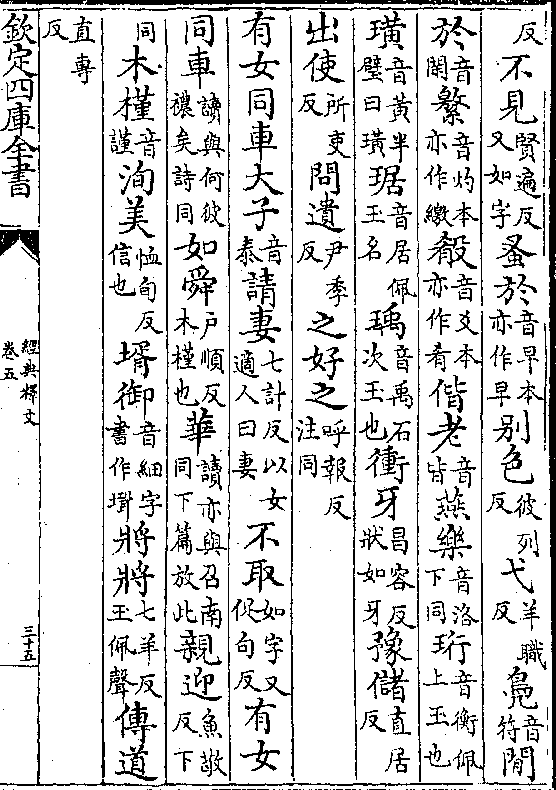 反不見賢遍反又如字蚤於音早本亦作早别色彼列反弋羊職反鳧音符閒
於音閑繁音灼本亦作繳殽音爻本亦作肴偕老音皆燕樂音洛下同珩音衡佩上玉也
璜音黄半璧曰璜琚音居佩玉名瑀音禹石次玉也衝牙昌容反狀如牙豫儲直居反
出使所吏反問遺尹季反之好之呼報反注同
有女同車大子音泰請妻七計反以女適人曰妻不取如字又促句反有女
同車讀與何彼襛矣詩同如舜戶順反木槿也華讀亦與召南同下篇放此親迎魚敬反下
同木槿音謹洵美恤旬反信也壻御音細字書作壻將將七羊反玉佩聲傳道
直專反
欽定四庫全書
經典釋文
卷五
三十五